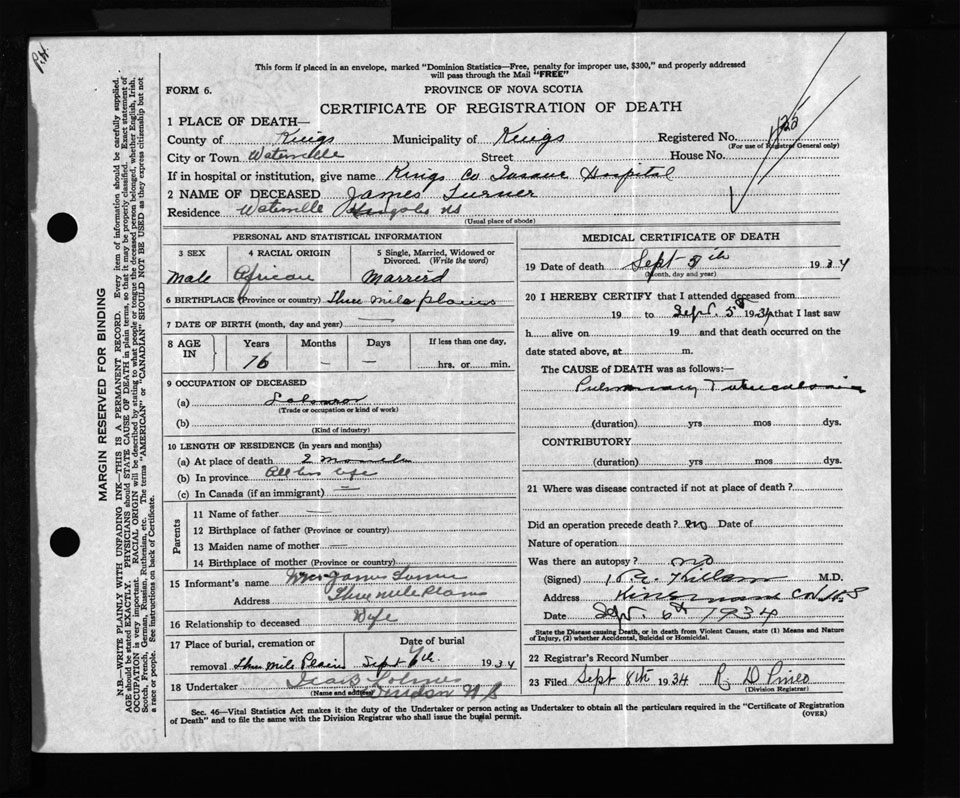 P.H.
This form if placed in an envelope, marked "Dominion Statistics—Free, penalty for improper use, $300," and properly addressed
will pass through the Mail "FREE"
FORM 6.
PROVINCE OF NOVA SCOTIA
CERTIFICATE OF REGISTRATION OF DEATH
1 PLACE OF DEATH—
County of Kings Municipality of Kings Registered No.
(For use of Registrar General only)
City or Town Waterville Street House No.
If in hospital or institution, give name Kings Co Insane Hospital
2 NAME OF DECEASED James Turner
Residence Waterville Kings Co NS
(Usual place of abode)
PERSONAL AND STATISTICAL INFORMATION
3 SEX 4 RACIAL ORIGIN 5 Single, Married, Widowed or
Divorced. (Write the word)
Male African Married
6 BIRTHPLACE (Province or country) Three mile plains
7 DATE OF BIRTH (month, day and year) —
8 AGE IN Years Months Days If less than one day,
76 — — hrs. or min.
9 OCCUPATION OF DECEASED
(a) Laborer
(Trade or occupation or kind of work)
(b)
(Kind of industry)
10 LENGTH OF RESIDENCE (in years and months)
(a) At place of death 2 months
(b) In province All his life
(c) In Canada (if an immigrant) —
Parents
11 Name of father —
12 Birthplace of father (Province or country)
13 Maiden name of mother —
14 Birthplace of mother (Province or country)
15 Informant's name Mrs James Turner
Address Three Mile Plains
16 Relationship to deceased Wife
17 Place of burial, cremation or Date of burial
removal Three Mile Plains Sept 6th. 1934
18 Undertaker
(Name and address) Windsor N.S
MEDICAL CERTIFICATE OF DEATH
19 Date of death Sept 5th 1934
(Month, day and year)
20 I HEREBY CERTIFY that I attended deceased from
19 to Sept. 5th 1934 that I last saw
h alive on 19 and that death occurred on the
date stated above, at m.
The CAUSE of DEATH was as follows:—
Pulmonary Tuberculosis
(duration) yrs mos dys.
CONTRIBUTORY
(duration) yrs mos dys.
21 Where was disease contracted if not at place of death?
Did an operation precede death? no Date of
Nature of operation
Was there an autopsy? no
(Signed) Killam M.D.
Address Co N S
Date Sept. 6th 1934
State the Disease causing Death, or in death from Violent Causes, state (1) Means and Nature
of Injury, (2) whether Accidental, Suicidal or Homicidal.
22 Registrar's Record Number
23 Filed Sept 8th 1934 R D Pineo
(Division Registrar)
Sec. 46—Vital Statistics Act makes it the duty of the Undertaker or person acting as Undertaker to obtain all the particulars required in the "Certificate of Registration
of Death" and to file the same with the Division Registrar who shall issue the burial permit.
(OVER)
MARGIN RESERVED FOR BINDING
N.B.—WRITE PLAINLY WITH UNFADING INK—THIS IS A PERMANENT RECORD. Every item of information should be carefully supplied.
AGE should be stated EXACTLY. PHYSICIANS should STATE CAUSE OF DEATH in plain terms, so that it may be properly classified. Exact statement of
OCCUPATION is very important. RACIAL ORIGIN will be described by stating to what people or tongue the deceased person belonged, whether English, Irish,
Scotch, French, German, Russian, Ruthenian, etc. The terms "AMERICAN" or "CANADIAN" SHOULD NOT BE USED as they express citizenship but not
a race or people. See instructions on back of Certificate.